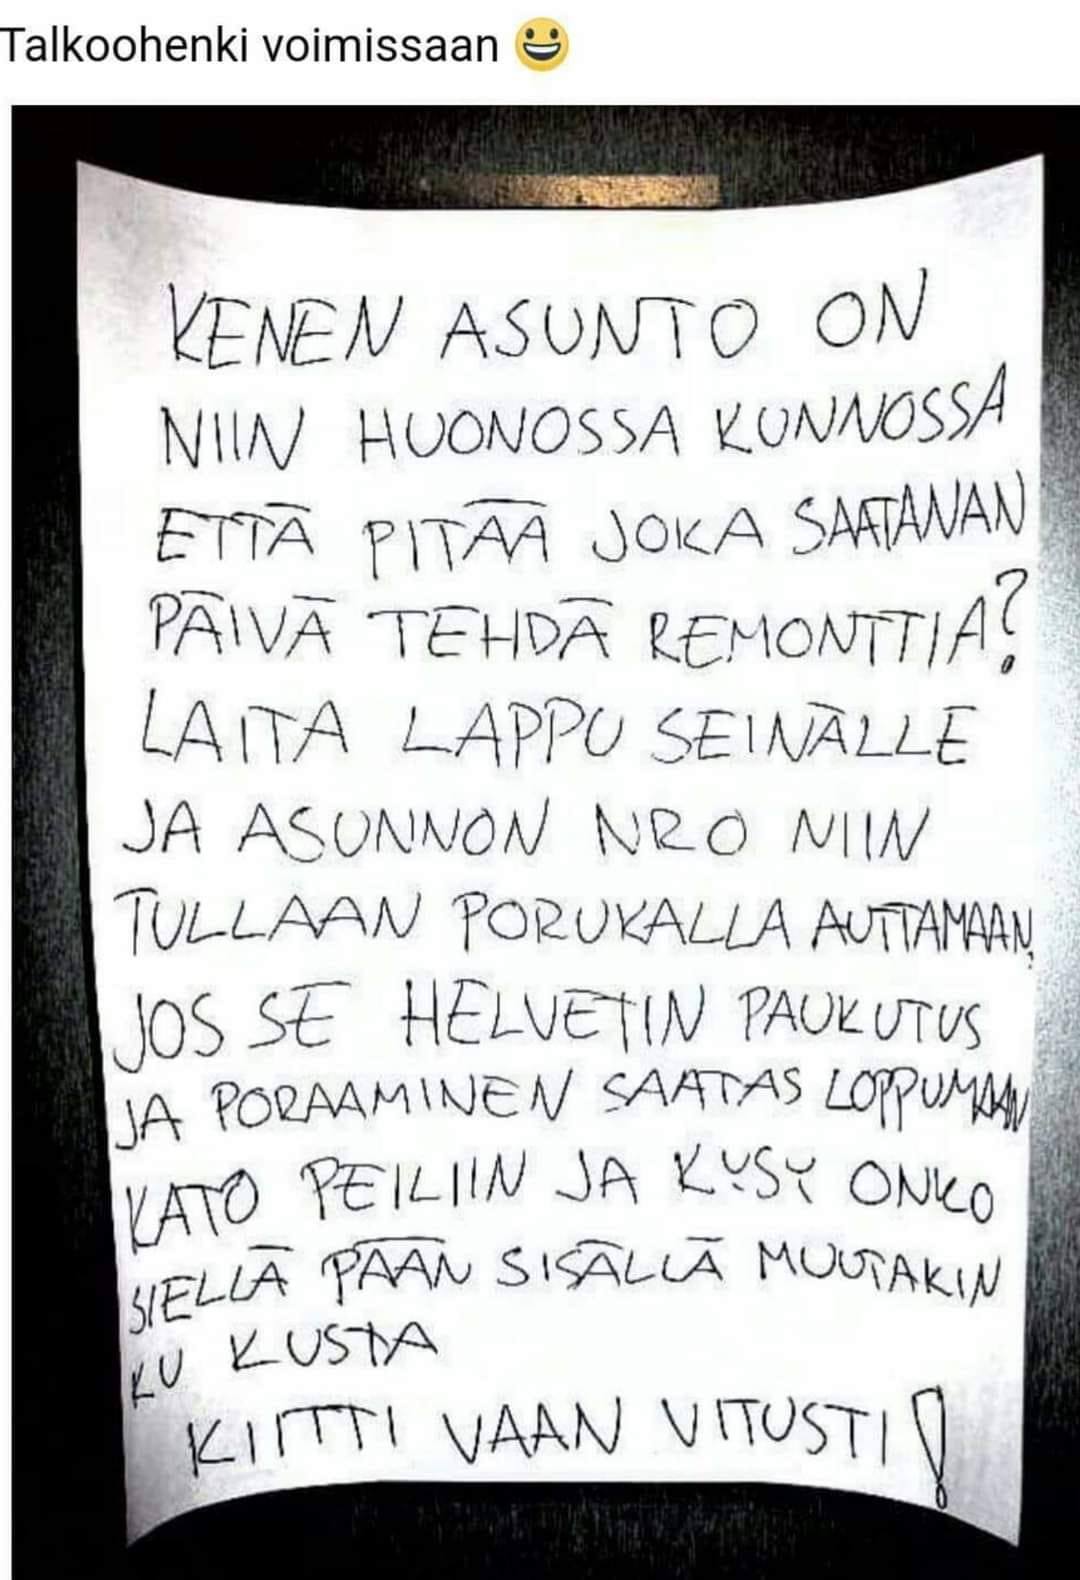 Talkoohenki voimissaan 😀
KENEN ASUNTO ON
NIIN HUONOSSA KUNNOSSA
ETTÄ PITÄÄ JOKA SAATANAN
PÄIVÄ TEHDÄ REMONTTIA?
LAITA LAPPU SEINÄLLE
JA ASUNNON NRO NIIN
TULLAAN PORUKALLA AUTTAMAAN,
JOS SE HELVETIN PAUKUTUS
JA PORAAMINEN SAATAS LOPPUMAAN
KATO PEILIIN JA KYSY ONKO
SIELLÄ PÄÄN SISÄLLÄ MUUTAKIN
KU KUSTA
KIITTI VAAN VITUSTI!